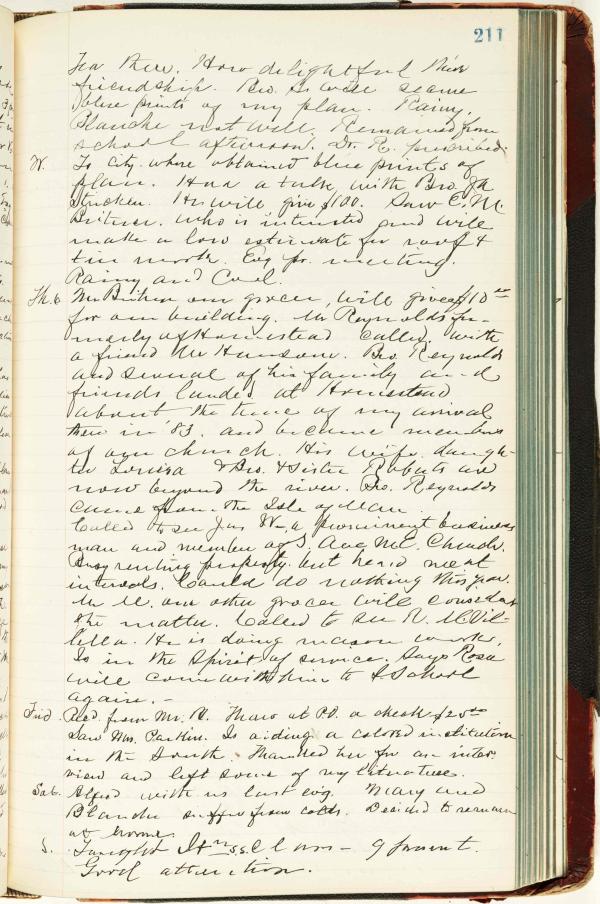 211
Tea there. How delightful their
friendship. Bro. S. will secure
blue prints of my plan. Rainy.
Blanche not well. Remained from
school afternoon. Dr. R. prescribed.
W. To City where obtained blue prints of
plan. Had a talk with Bro. Jn
He will give $100. Saw E. M.
who is interested and will
make a low estimate for roof &
tin work. Evg. pr. meeting.
Rainy and Cool.
Th. 6 Mr our grocer, will give $10 00
for our building. Mr Reynolds for-
merly of Homestead called with
a friend Mr Bro. Reynolds
and several of his family and
friends landed at Homestead
about the time of my arrival
there in '83. and became members
of our church. His wife, daugh-
ter Louisa & Bro. & Sister Roberts are
now beyond the river. Bro. Reynolds
came from the Isle of Man.
Called to see Jas a prominent business
man and member of Ave M.E. Church.
Busy renting property. but heard me at
intervals. Could do nothing this year.
Mr M. our other grocer will consider
the matter. Called to see R.
He is doing mason work.
Is in the Spirit of service. Says Rosa
will come with him to S School
again. -
Frid. Recd. from Mr. Thaw at P.O. a check $25 00
Saw Mrs. Parkin. Is aiding a colored institution
in the South. Thanked her for an inter-
view and left some of my literature.
Sat. Alfred with us last evg. Mary and
Blanche suffer from colds. Decided to remain
at home.
S. Taught S.S. Class - 9 present.
Good attention.